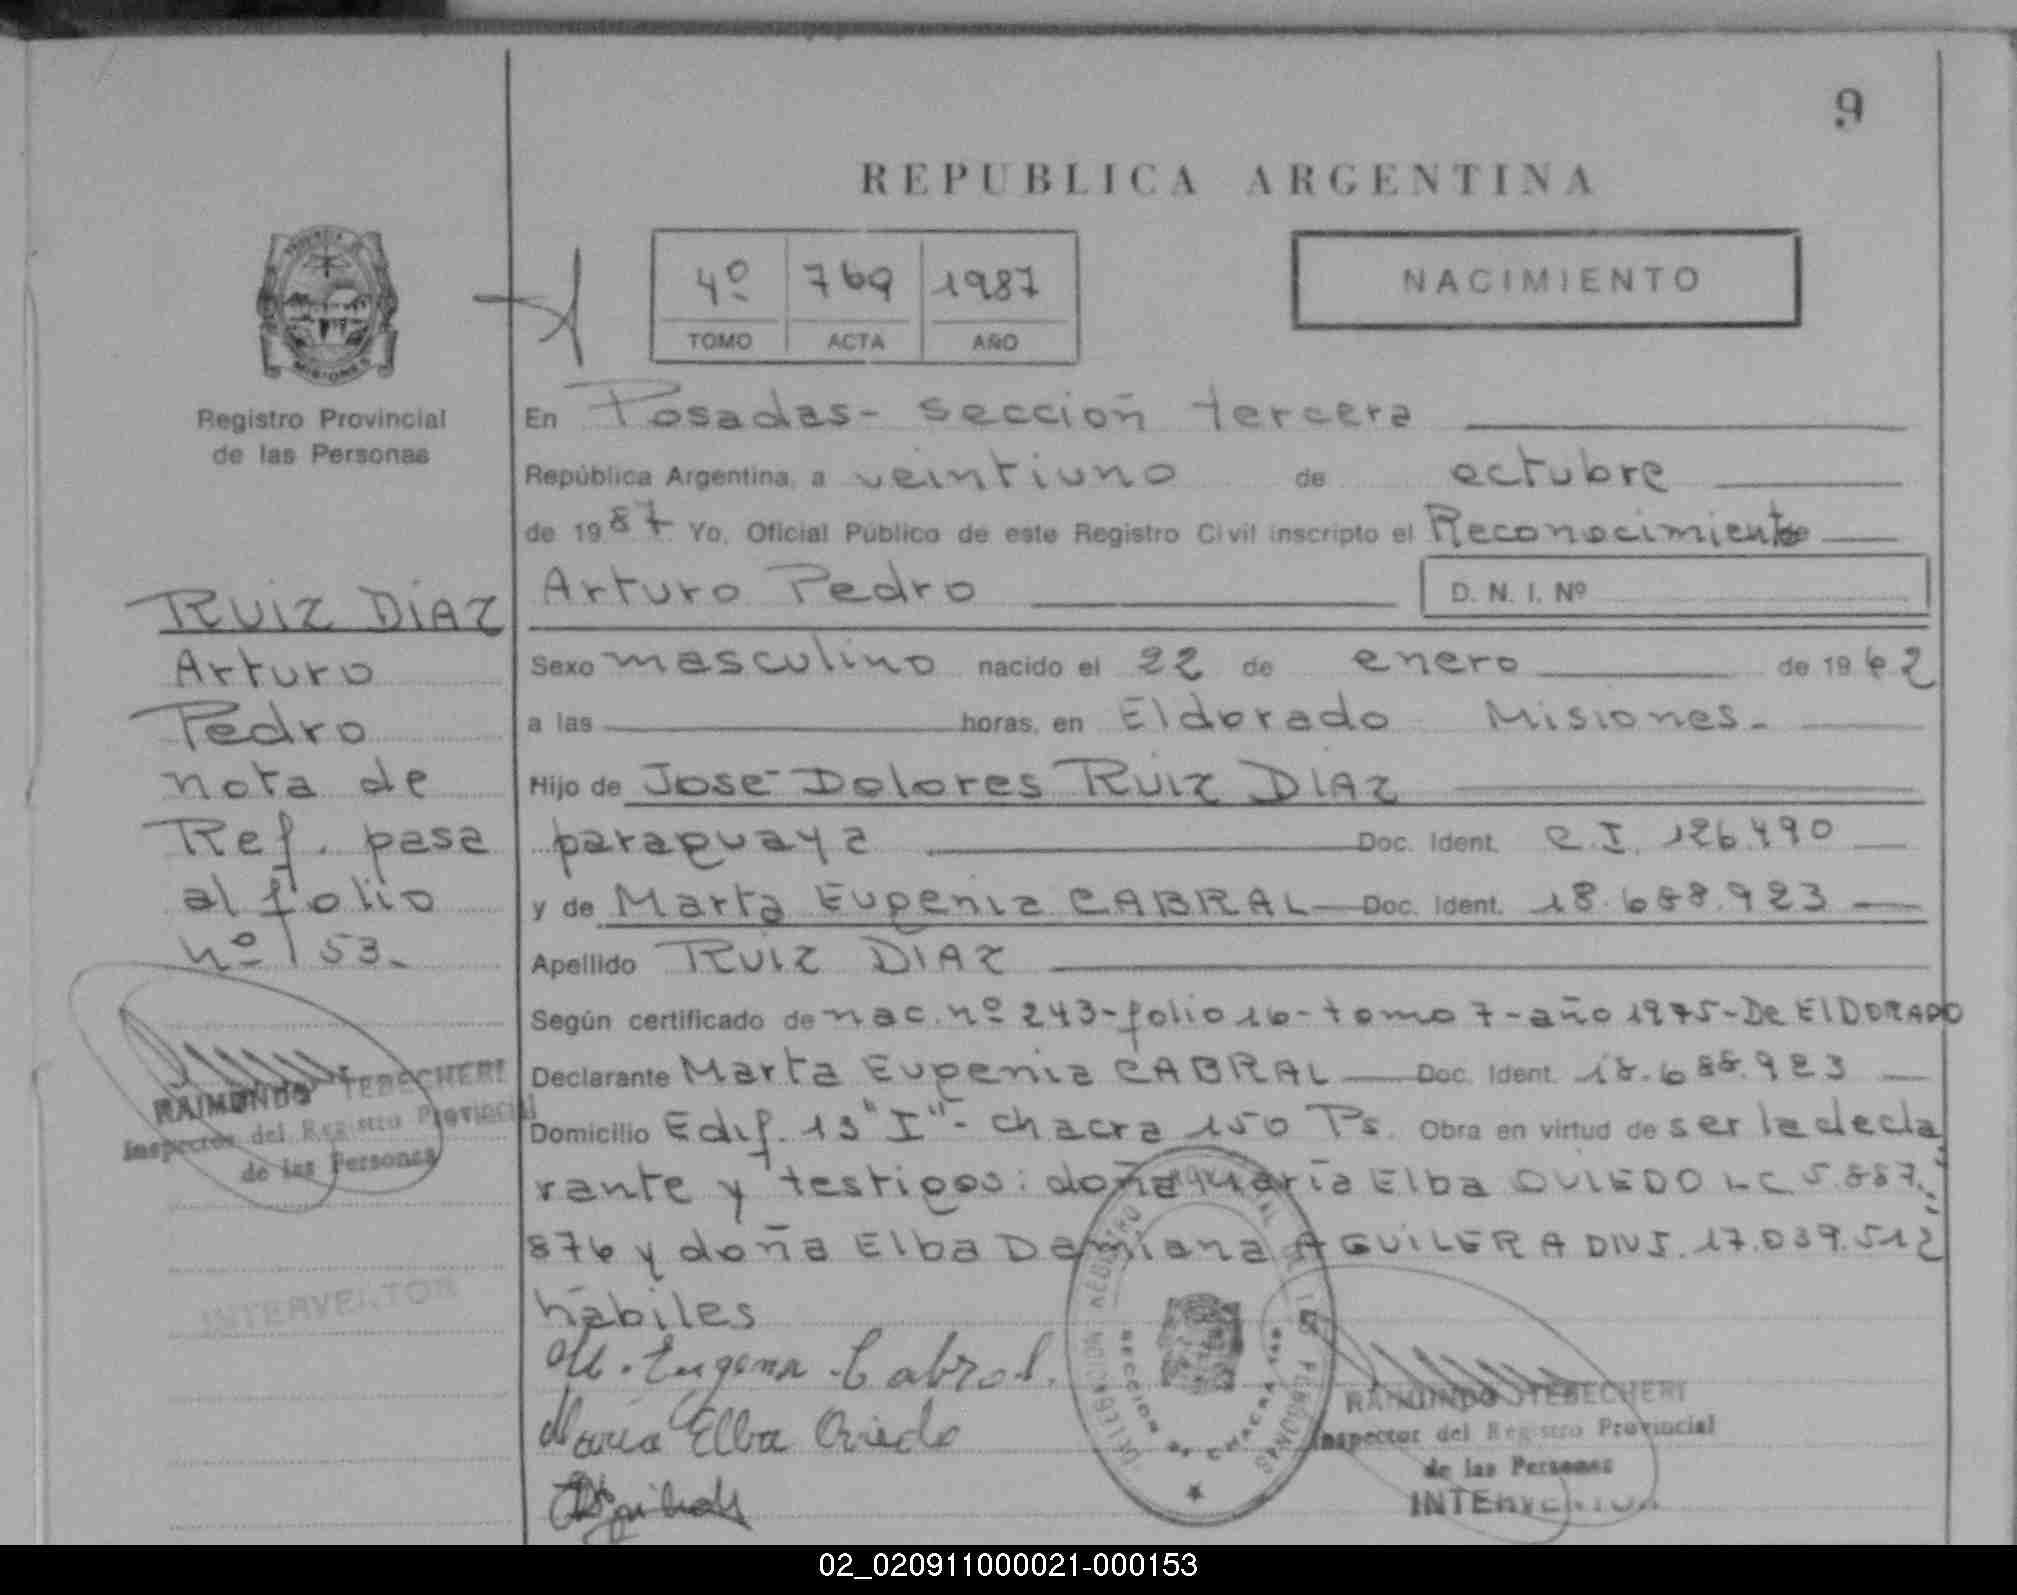 9
REPUBLICA ARGENTINA
4º 769 1987
TOMO ACTA AÑO
NACIMIENTO
MISIONES
Registro Provincial
de las Personas
En Posadas- sección tercera
República Argentina, a veintiuno de octubre
de 1987 Yo, Oficial Público de este Registro Civil inscripto el Reconocimiento
Arturo Pedro D. N. I. Nº
Sexo masculino nacido el 22 de enero de 1962
a las horas, en Eldorado Misiones-
Hijo de José Dolores RUIZ DIAZ
paraguaya Doc. Ident. C.I. 126.490
y de Marta Eugenia CABRAL Doc. Ident. 18.688.923
Apellido RUIZ DIAZ
Según certificado de nac. nº 243-folio 16-tomo 7-año 1975-De ElDORADO
Declarante Marta Eugenia CABRAL Doc. Ident. 18.688.923
Domicilio Edif. 13 "I"- chacra 150 Ps. Obra en virtud de ser la decla
rante y testigos: doña María Elba OVIEDO LC 5.887.
876 y doña Elba Damiana AGUILERA DNI. 17.039.512
hábiles
M. Eugenia Cabral.
María Elba Oviedo
RUIZ DIAZ
Arturo
Pedro
nota de
Ref. pasa
al folio
nº 153.
RAIMUNDO TEBECHERI
Inspector del Registro Provincial
de las Personas
INTERVENTOR
RAIMUNDO TEBECHERI
Inspector del Registro Provincial
de las Personas
INTERVENTOR
02_020911000021-000153